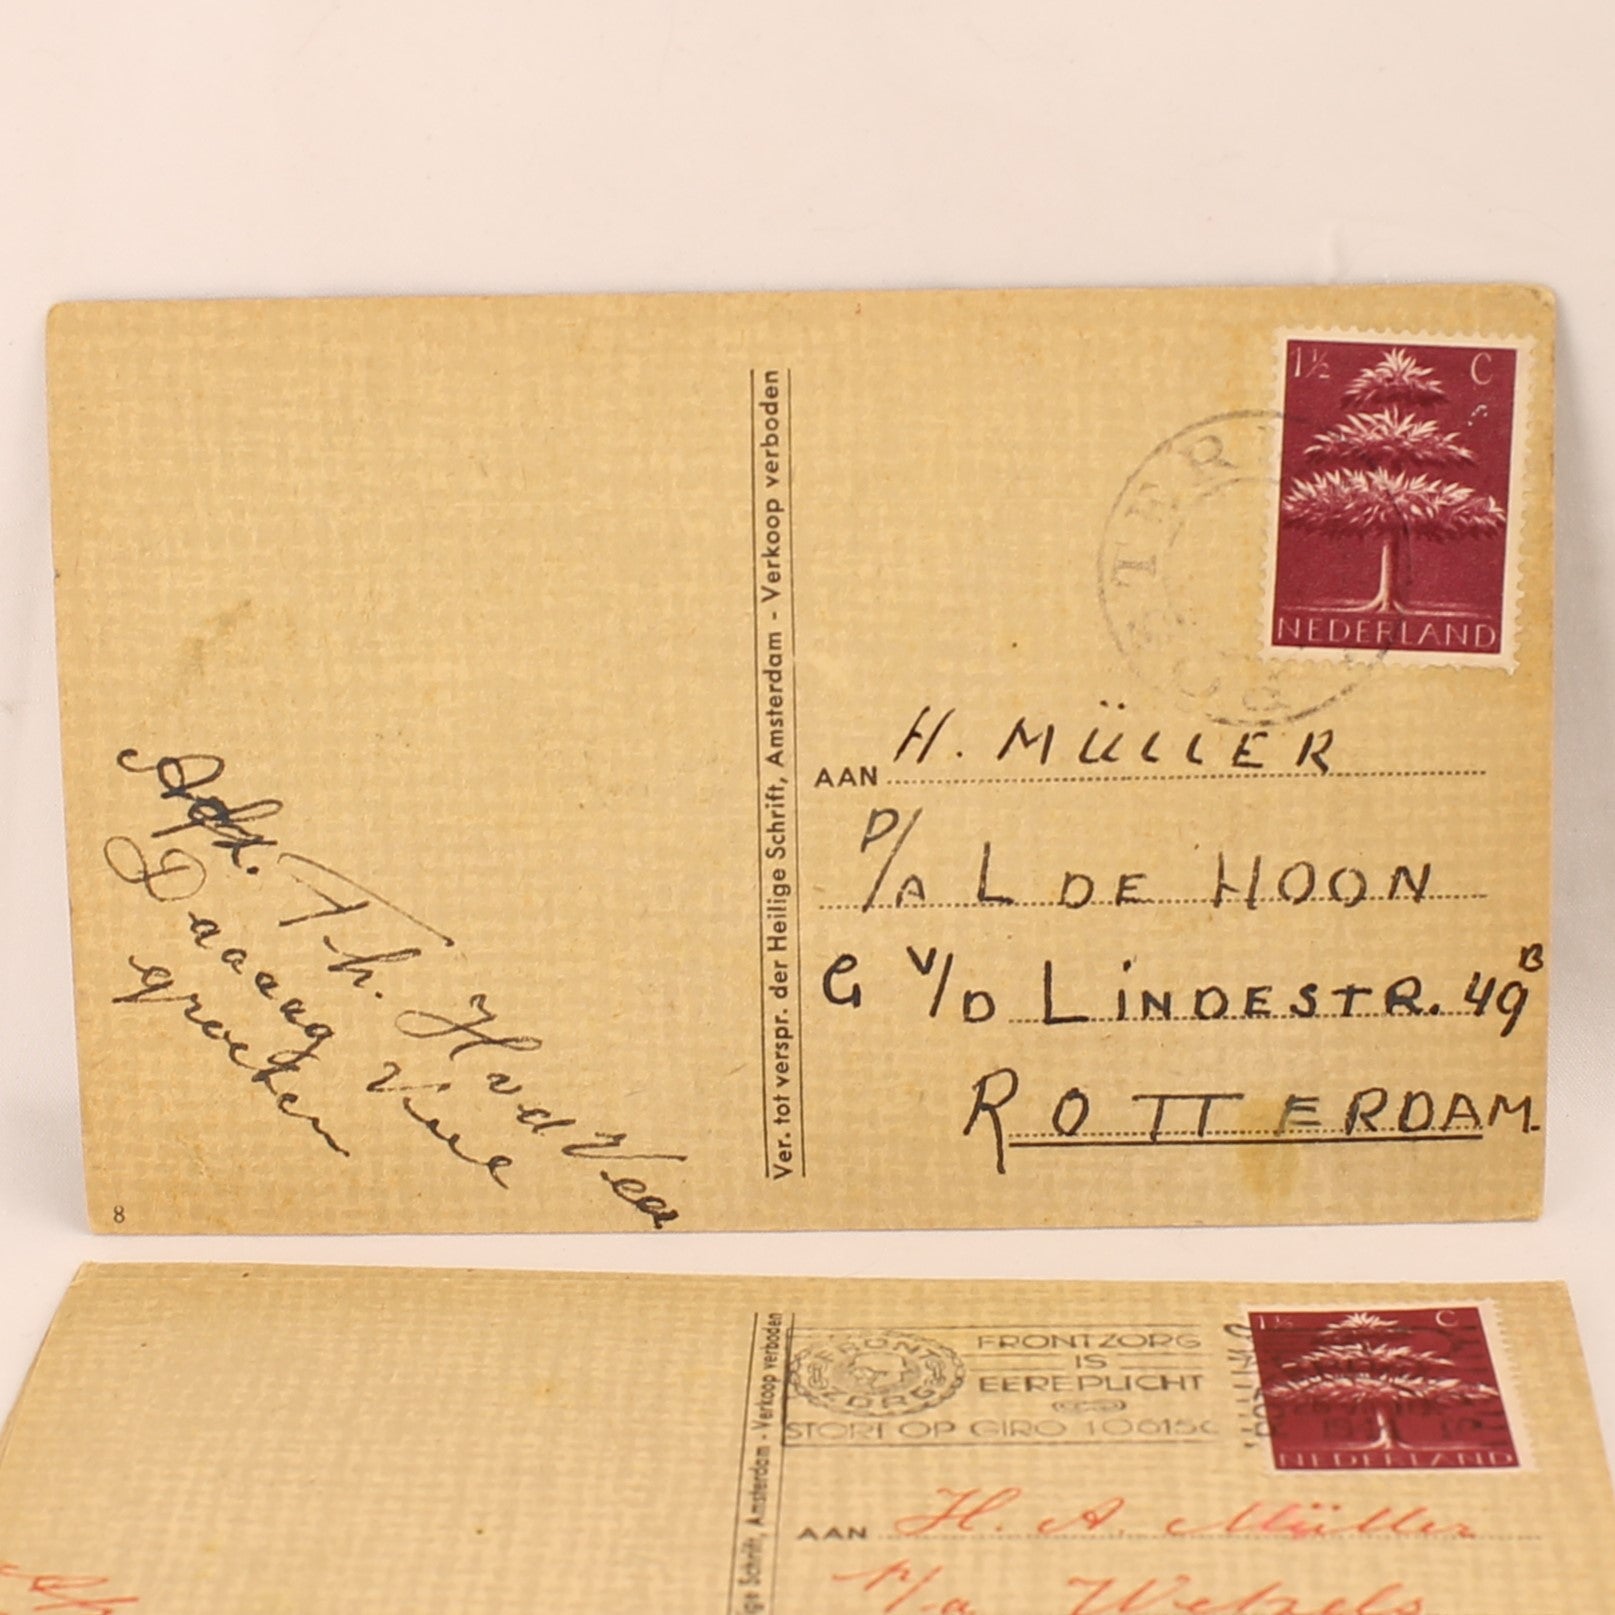 1½ C
NEDERLAND
Ver. tot verspr. der Heilige Schrift, Amsterdam - Verkoop verboden
AAN H. MÜLLER
P/A L DE HOON
G V/D LINDESTR. 49B
ROTTERDAM.
Th. H vd Veer
Daaaag Vele
groeten
8
1½ C
NEDERLAND
FRONTZORG
IS
EEREPLICHT
STORT OP GIRO
FRONT ZORG
ige Schrift, Amsterdam - Verkoop verboden
AAN H. A. Müller
p/a Wetzels